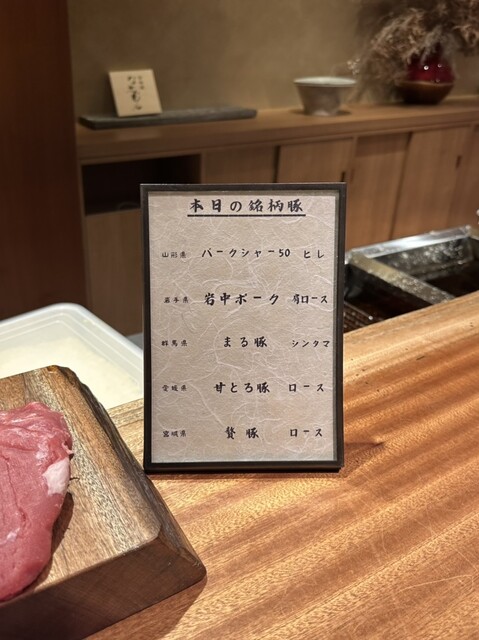 本日の銘柄豚
山形県 バークシャー50 ヒレ
岩手県 岩中ポーク 肩ロース
群馬県 まる豚 シンタマ
愛媛県 甘とろ豚 ロース
宮城県 贅豚 ロース